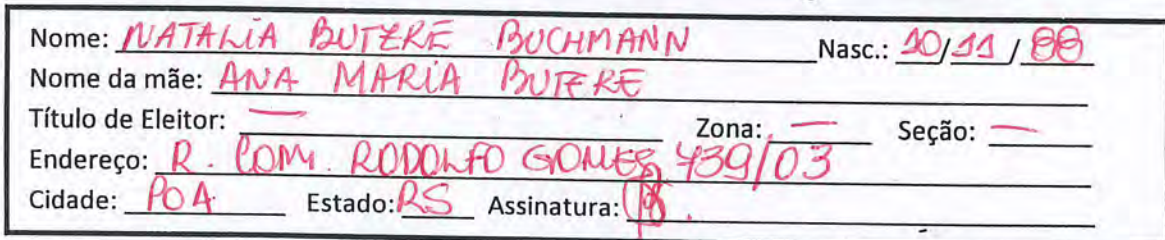 Nome: NATALIA BUTZRE BUCHMANN Nasc.: 10/11/88
Nome da mãe: ANA MARIA BUTZRE
Título de Eleitor: — Zona: — Seção: —
Endereço: R. COM. RODOLFO GOMES 739/03
Cidade: POA Estado: RS Assinatura: